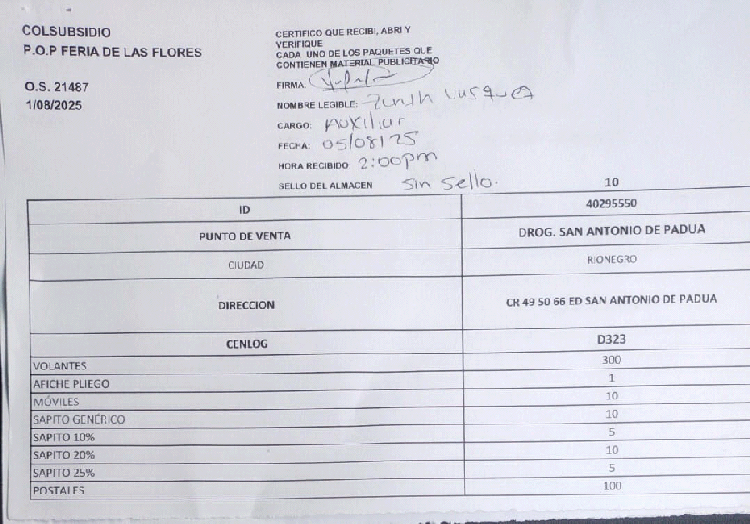 COLSUBSIDIO
P.O.P FERIA DE LAS FLORES
O.S. 21487
1/08/2025
CERTIFICO QUE RECIBI, ABRI Y
VERIFIQUE
CADA UNO DE LOS PAQUETES QUE
CONTIENEN MATERIAL PUBLICITARIO
FIRMA:
NOMBRE LEGIBLE:
CARGO: Auxiliar
FECHA: 05/08/25
HORA RECIBIDO 2:00pm
SELLO DEL ALMACEN Sin Sello.
10
ID 40295550
PUNTO DE VENTA DROG. SAN ANTONIO DE PADUA
CIUDAD RIONEGRO
DIRECCION CR 49 50 66 ED SAN ANTONIO DE PADUA
CENLOG D323
VOLANTES 300
AFICHE PLIEGO 1
MÓVILES 10
SAPITO GENÉRICO 10
SAPITO 10% 5
SAPITO 20% 10
SAPITO 25% 5
POSTALES 100